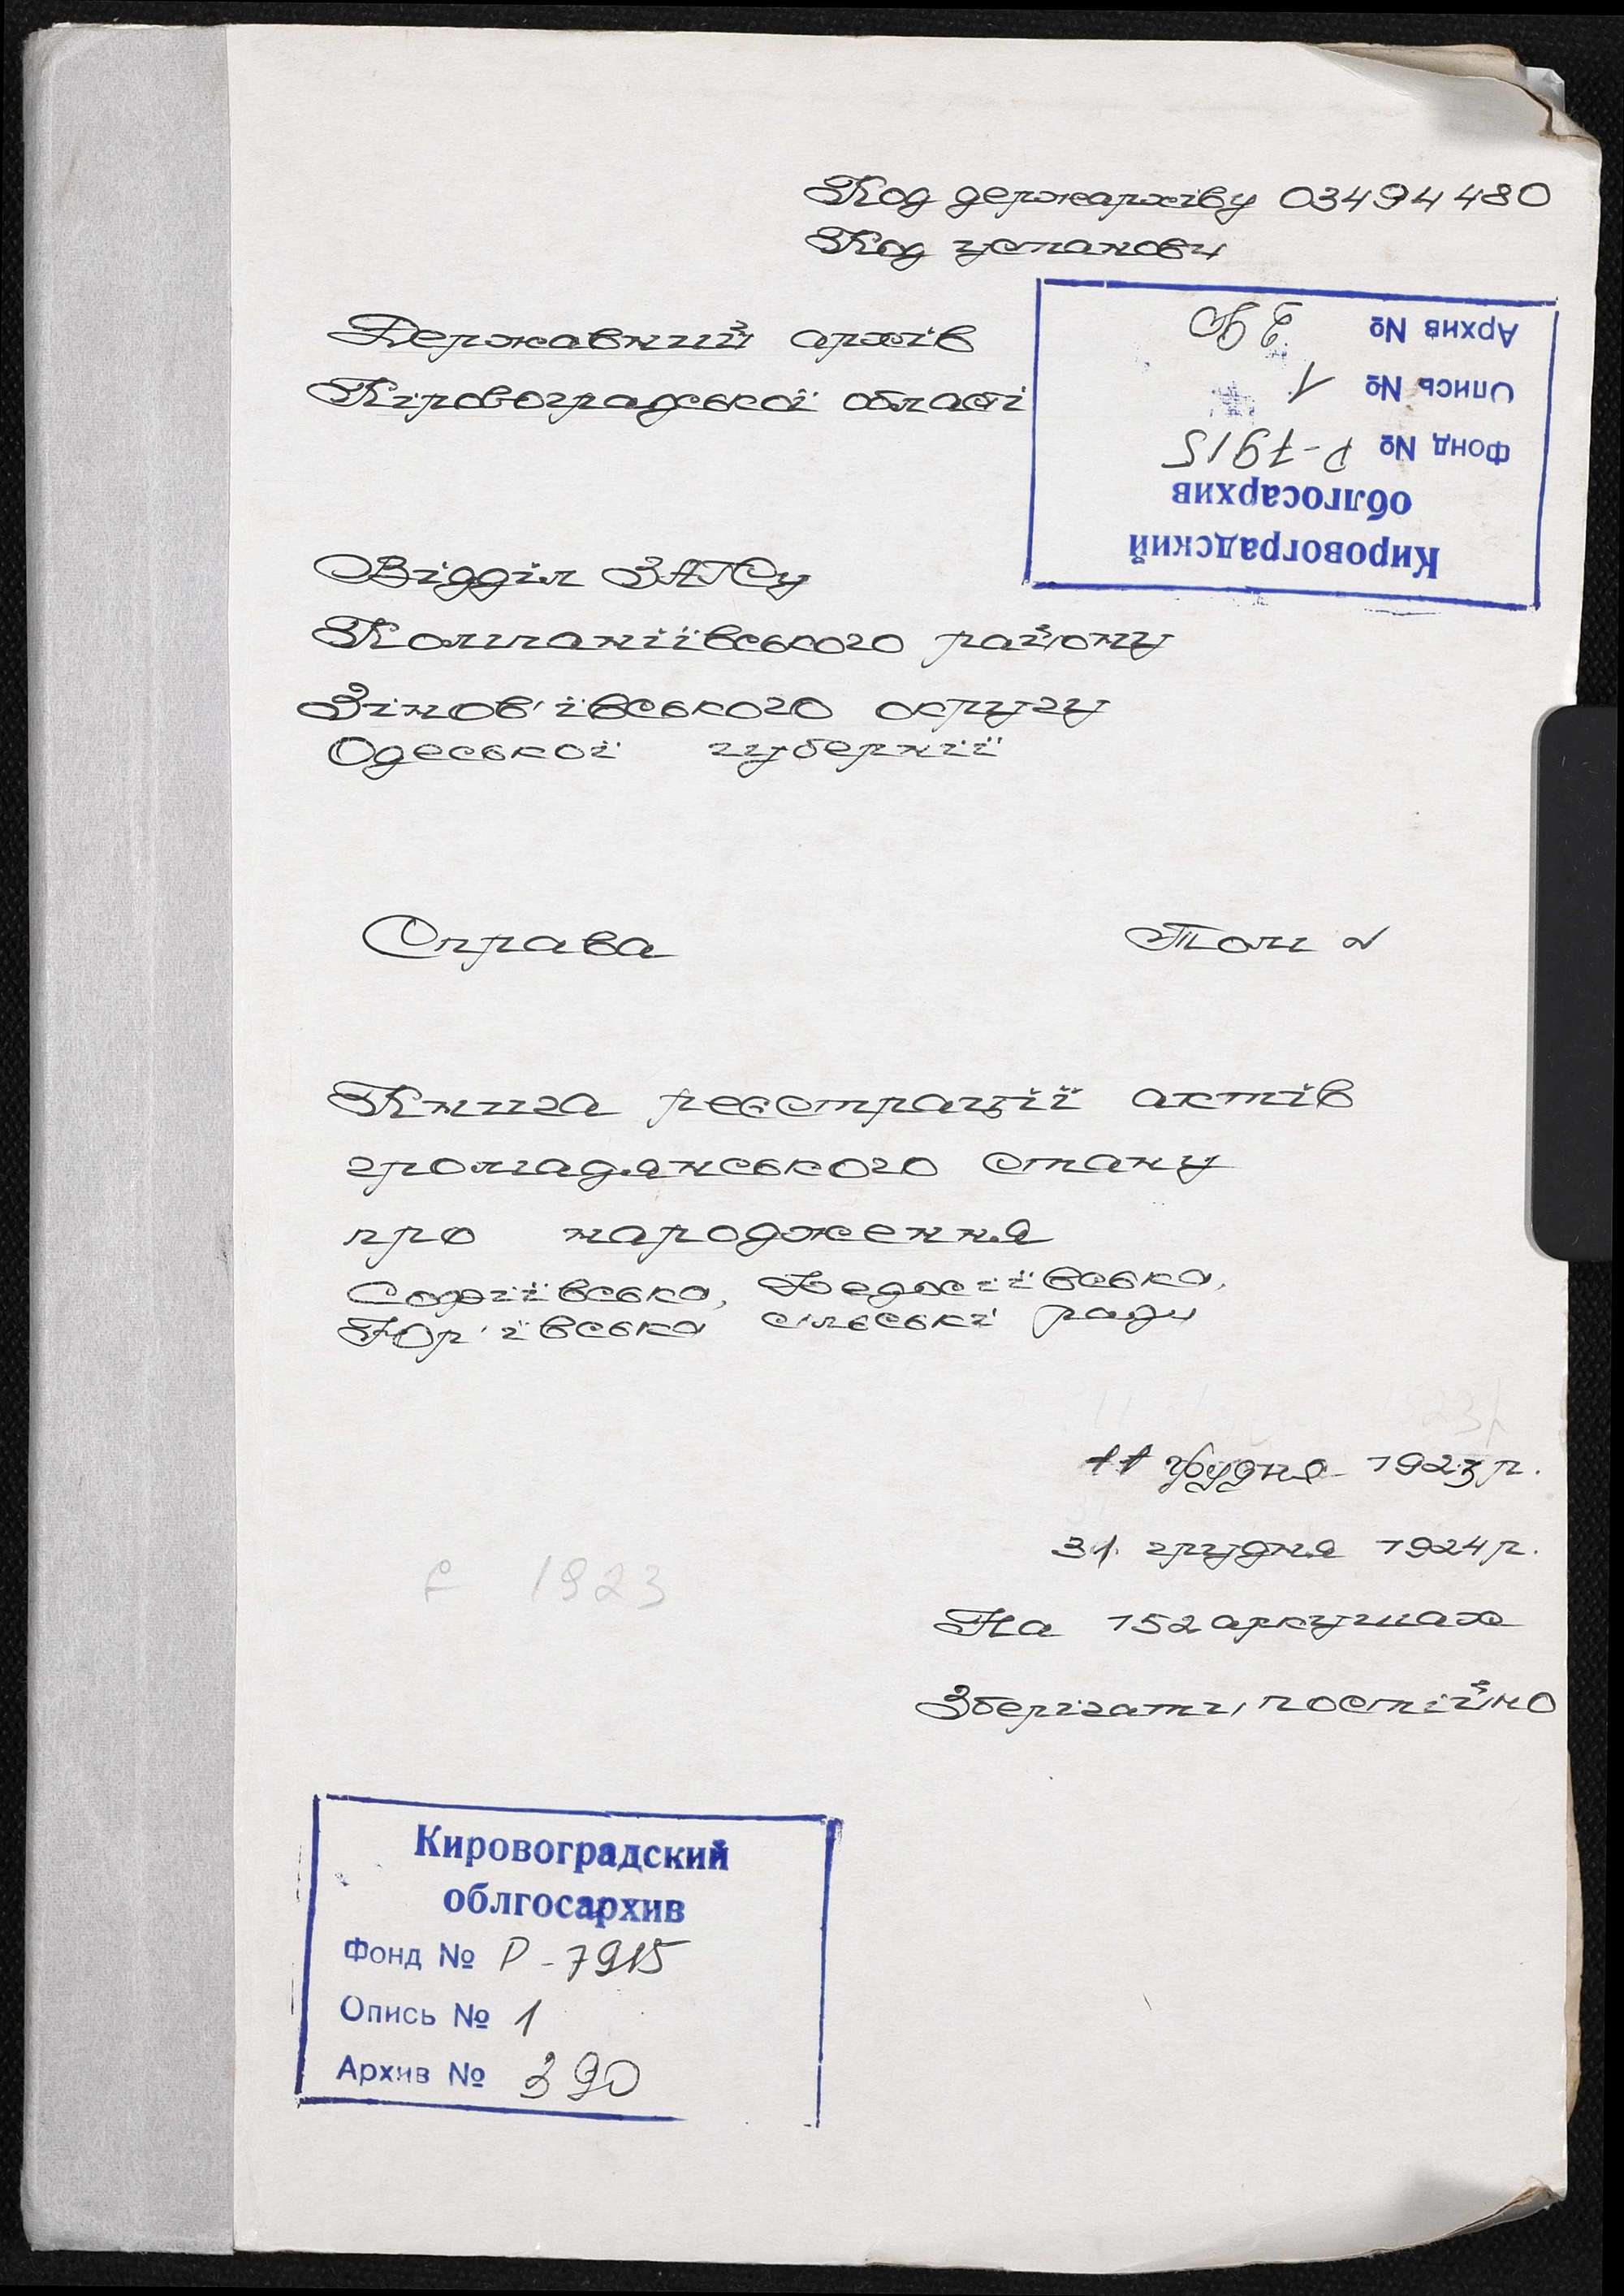 Код держархіву 03494480
Код установи
Державний архів
Кіровоградської області
Кировоградский
облгосархив
Фонд № Р-7915
Опись № 1
Архив № 390
Відділ ЗАГСу
Компаніївського району
Зінов'ївського округу
Одеської губернії
Справа Том №
Книга реєстрації актів
громадянського стану
про народження
Софіївська, Федосіївська,
Юр'ївська сільські ради
11 грудня 1923 р.
31 грудня 1924 р.
1923
На 152 аркушах
Зберігати постійно
Кировоградский
облгосархив
Фонд № Р-7915
Опись № 1
Архив № 390